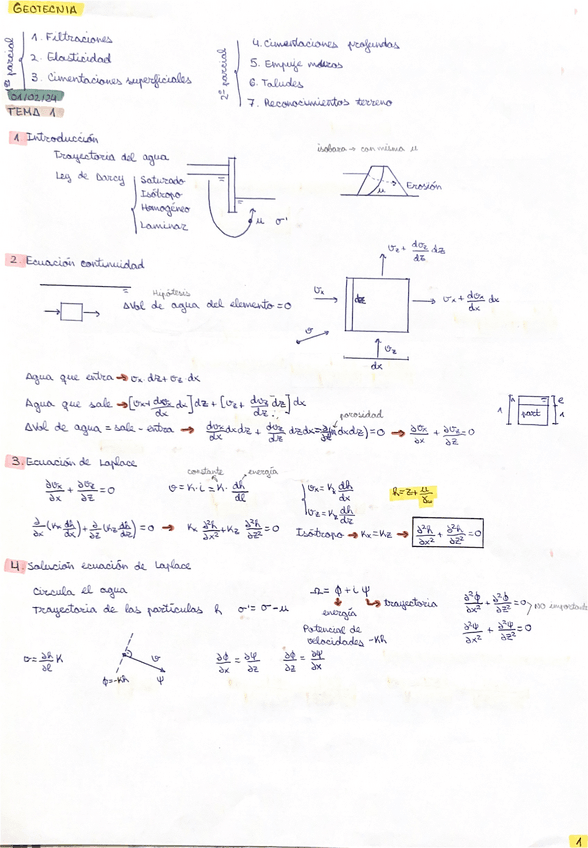 GEOTECNIA
1er parcial
1. Filtraciones
2. Elasticidad
3. Cimentaciones superficiales
2º parcial
4. Cimentaciones profundas
5. Empuje muros
6. Taludes
7. Reconocimientos terreno
01/02/24
TEMA 1
1. Introducción
Trayectoria del agua
Ley de Darcy
Saturado
Isótropo
Homogéneo
Laminar
u σ'
isobara → con misma u
u
Erosión
2. Ecuación continuidad
Hipótesis
ΔVol de agua del elemento = 0
vx
dz
vz + dvz/dz dz
vx + dvx/dx dx
v
vz
dx
Agua que entra → vx dz + vz dx
Agua que sale → [vx + dvx/dx dx] dz + [vz + dvz/dz dz] dx
porosidad
ΔVol de agua = sale - entra → dvx/dx dx dz + dvz/dz dz dx = 0 → ∂vx/∂x + ∂vz/∂z = 0
1 part e 1
3. Ecuación de Laplace
constante energía
∂vx/∂x + ∂vz/∂z = 0
v = K · i = K · dh/dl
vx = Kx dh/dx
vz = Kz dh/dz
h = z + u/γw
∂/∂x (Kx dh/dx) + ∂/∂z (Kz dh/dz) = 0 → Kx ∂²h/∂x² + Kz ∂²h/∂z² = 0 Isótropo → Kx = Kz → ∂²h/∂x² + ∂²h/∂z² = 0
4. Solución ecuación de Laplace
Circula el agua
Trayectoria de las partículas h σ' = σ - u
Ω = ϕ + i ψ
energía
trayectoria
Potencial de velocidades -Kh
∂²ϕ/∂x² + ∂²ϕ/∂z² = 0
NO importante
∂²ψ/∂x² + ∂²ψ/∂z² = 0
v = ∂h/∂l K
v
ϕ = -Kh
ψ
∂ϕ/∂x = ∂ψ/∂z
∂ϕ/∂z = ∂ψ/∂x
1